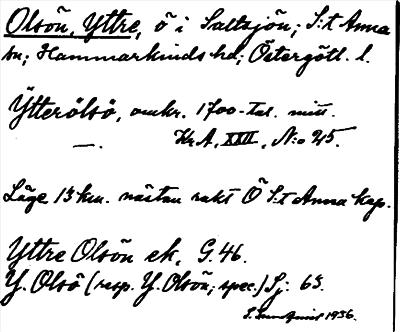 Olsön, Yttre, ö i Saltsjön; S:t Anna
sn; Hammarkinds hd; Östergötl. l.
Ytterölsö, omkr. 1700-tal. mitt.
—. Kr A, XXII, N:o 25.
Läge 13 km. nästan rakt Ö S:t Anna kap.
Yttre Olsön ek, G. 46.
Y. Olsö (resp. Y. Olsön; spec.) Sj: 65.
1936.